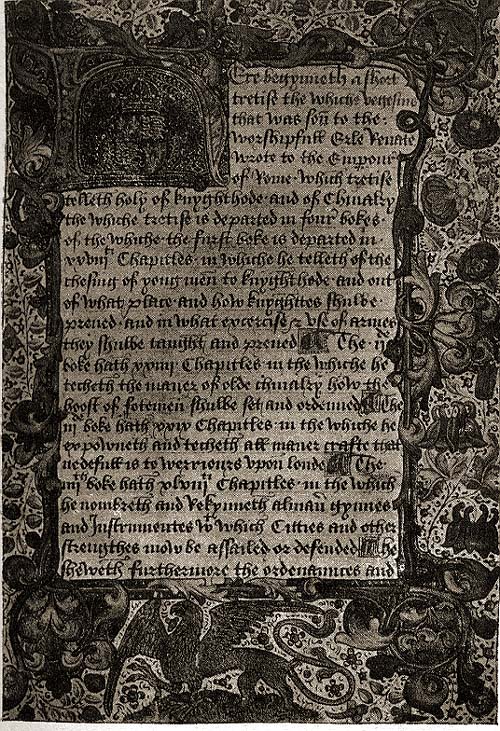 Ere begynneth a short
tretise the whiche vegesius
that was son to the
worshipfull Erle Renate
wrote to the Emponr
of Rome Which tretise
telleth holy of knyghthode and of Chiualry
the whiche tretise is departed in four bokes
of the whiche the first boke is departed in
xxviij Chapitles in whiche he telleth of the
chesing of yong men to knyghthode and out
of what place and how knyghttes shulbe
preued and in what excercise & vse of armes
they shulbe taught and preued The ij
boke hath xxiij Chapitles in the whiche he
techeth the maner of olde chiualry how the
hoost of fotemen shulbe set and ordeined The
iij boke hath xxix Chapitles in the whiche he
expowneth and techeth all maner crafte that
nedefull is to werriours vpon londe The
iiij boke hath xlviij Chapitles in the which
he nombreth and Rekynneth alman gynnes
and Instrumentes wt which Citties and other
strengthes mow be assailed or defended he
sheweth furthermore the ordenannces and